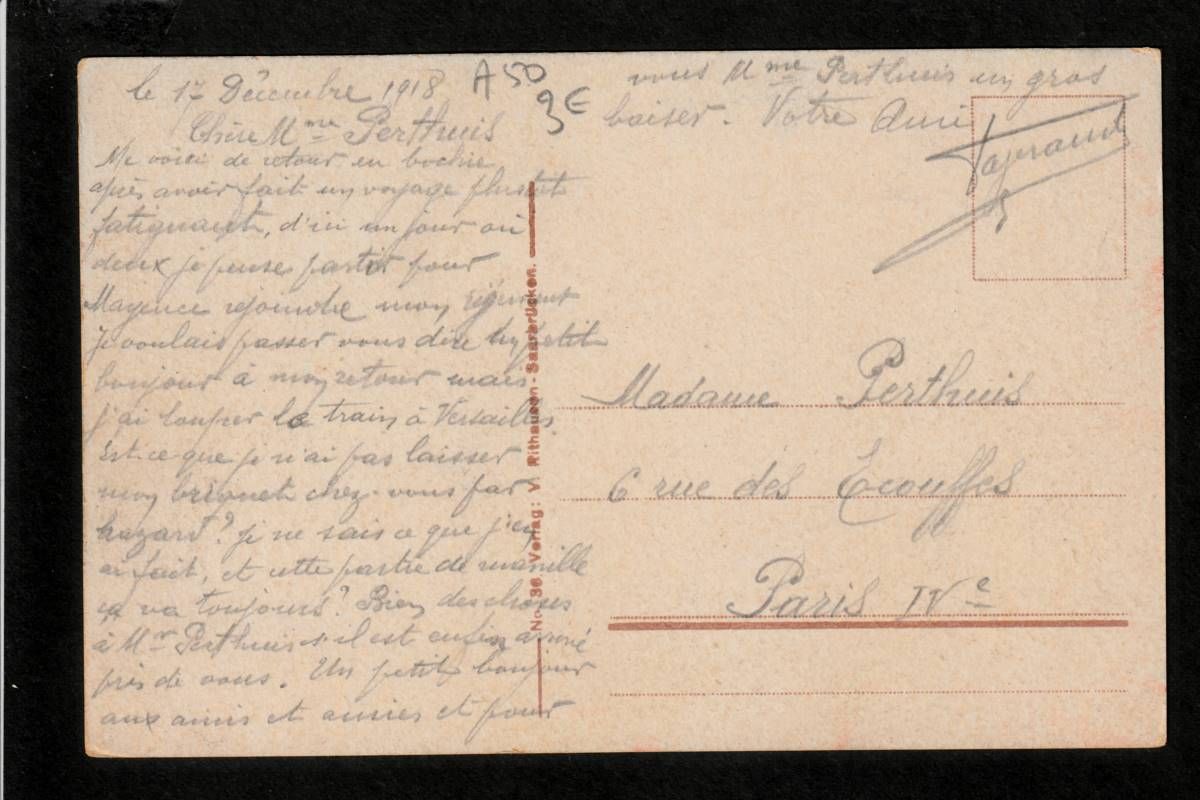 le 17 Décembre 1918
A50
3€
Chère Mme Perthuis
Me voici de retour en bochie
après avoir fait un voyage plustot
fatiguant, d'ici un jour ou
deux je pense partir pour
Mayence rejoindre mon régiment
Je voulais passer vous dire un petit
bonjour à mon retour mais
j'ai louper le train à Versailles.
Est-ce que je n'ai pas laisser
mon briquet chez-vous par
hazard? Je ne sais ce que j'en
ai fait, et cette partie de manille
ça va toujours? Bien des choses
à Mr Perthuis s'il est enfin arrivé
près de vous. Un petit bonjour
aux amis et amies et pour
vous Mme Perthuis un gros
baiser. Votre Ami
No. 36 Verlag: V. Rithausen-Saarbrücken.
Madame Perthuis
6 rue des Écouffes
Paris IVe